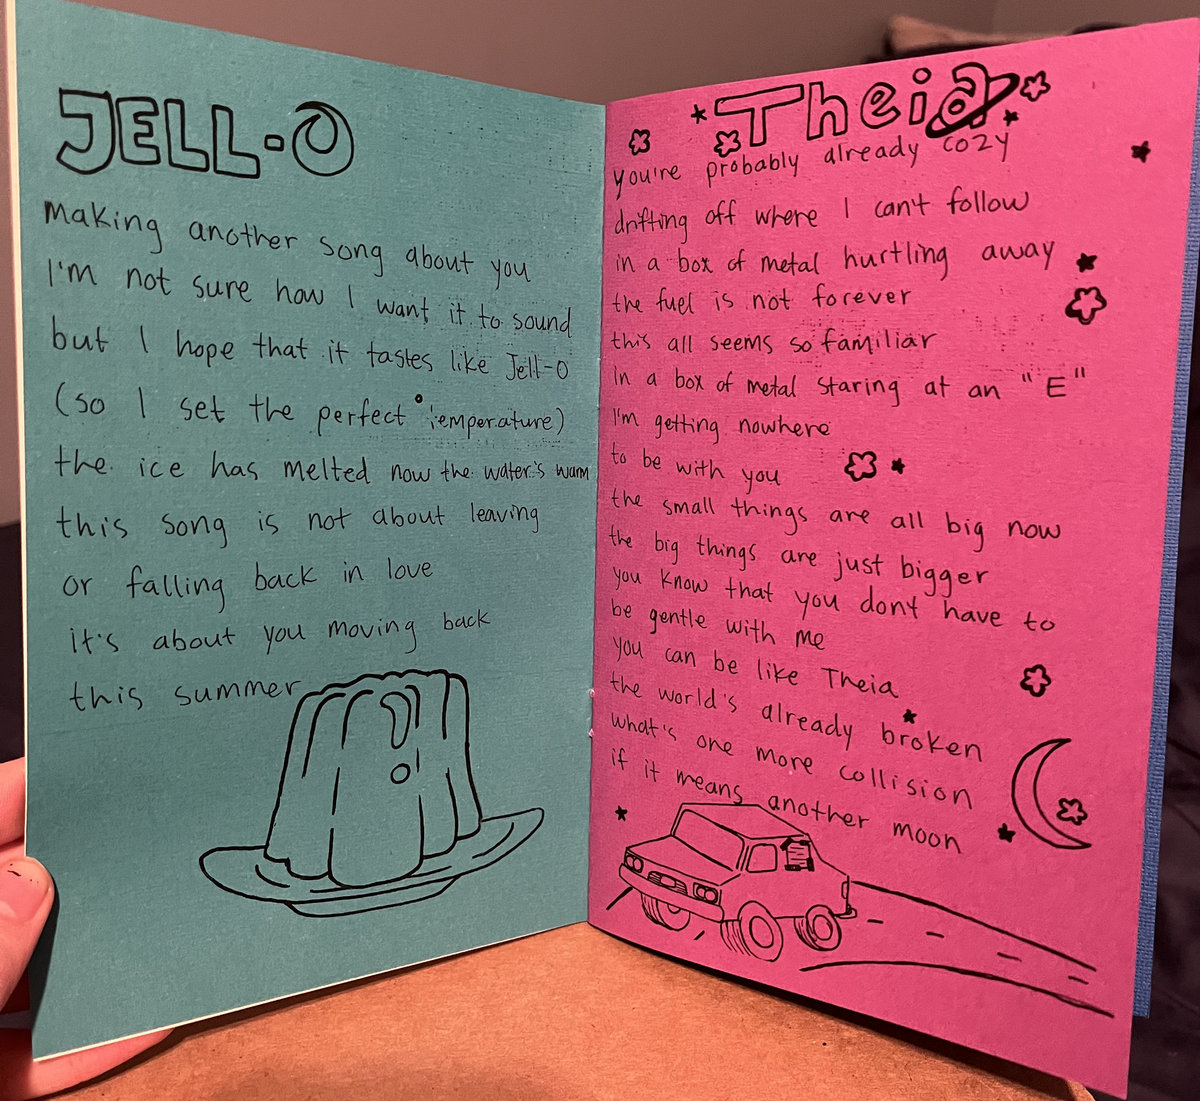 JELL-O
making another song about you
I'm not sure how I want it to sound
but I hope that it tastes like Jell-O
(so I set the perfect temperature)
the ice has melted now the water's warm
this song is not about leaving
or falling back in love
it's about you moving back
this summer
Theia
you're probably already cozy
drifting off where I can't follow
in a box of metal hurtling away
the fuel is not forever
this all seems so familiar
in a box of metal staring at an "E"
I'm getting nowhere
to be with you
the small things are all big now
the big things are just bigger
you know that you don't have to
be gentle with me
you can be like Theia
the world's already broken
what's one more collision
if it means another moon